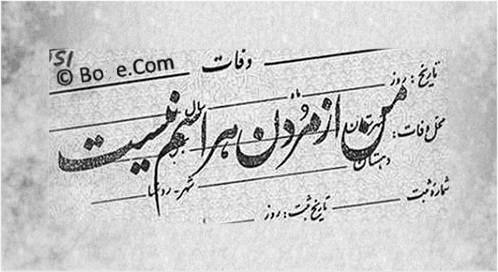 وفات
© Bo e.Com
تاریخ: روز ماه سال
من از مُردن هراسم نیست
محل وفات: شهرستان
دهستان شهر - روستا
شماره ثبت تاریخ ثبت: روز